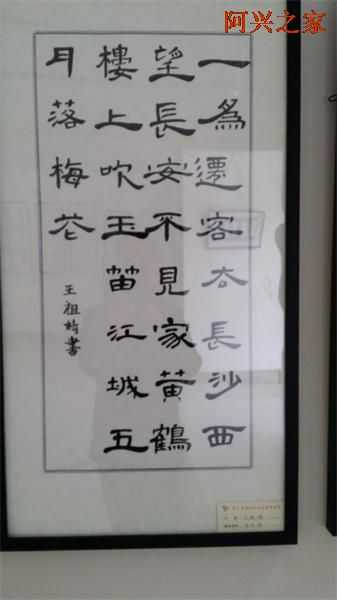 阿兴之家
一為遷客去長沙西
望長安不見家黃鶴
樓上吹玉笛江城五
月落梅花
王祖書